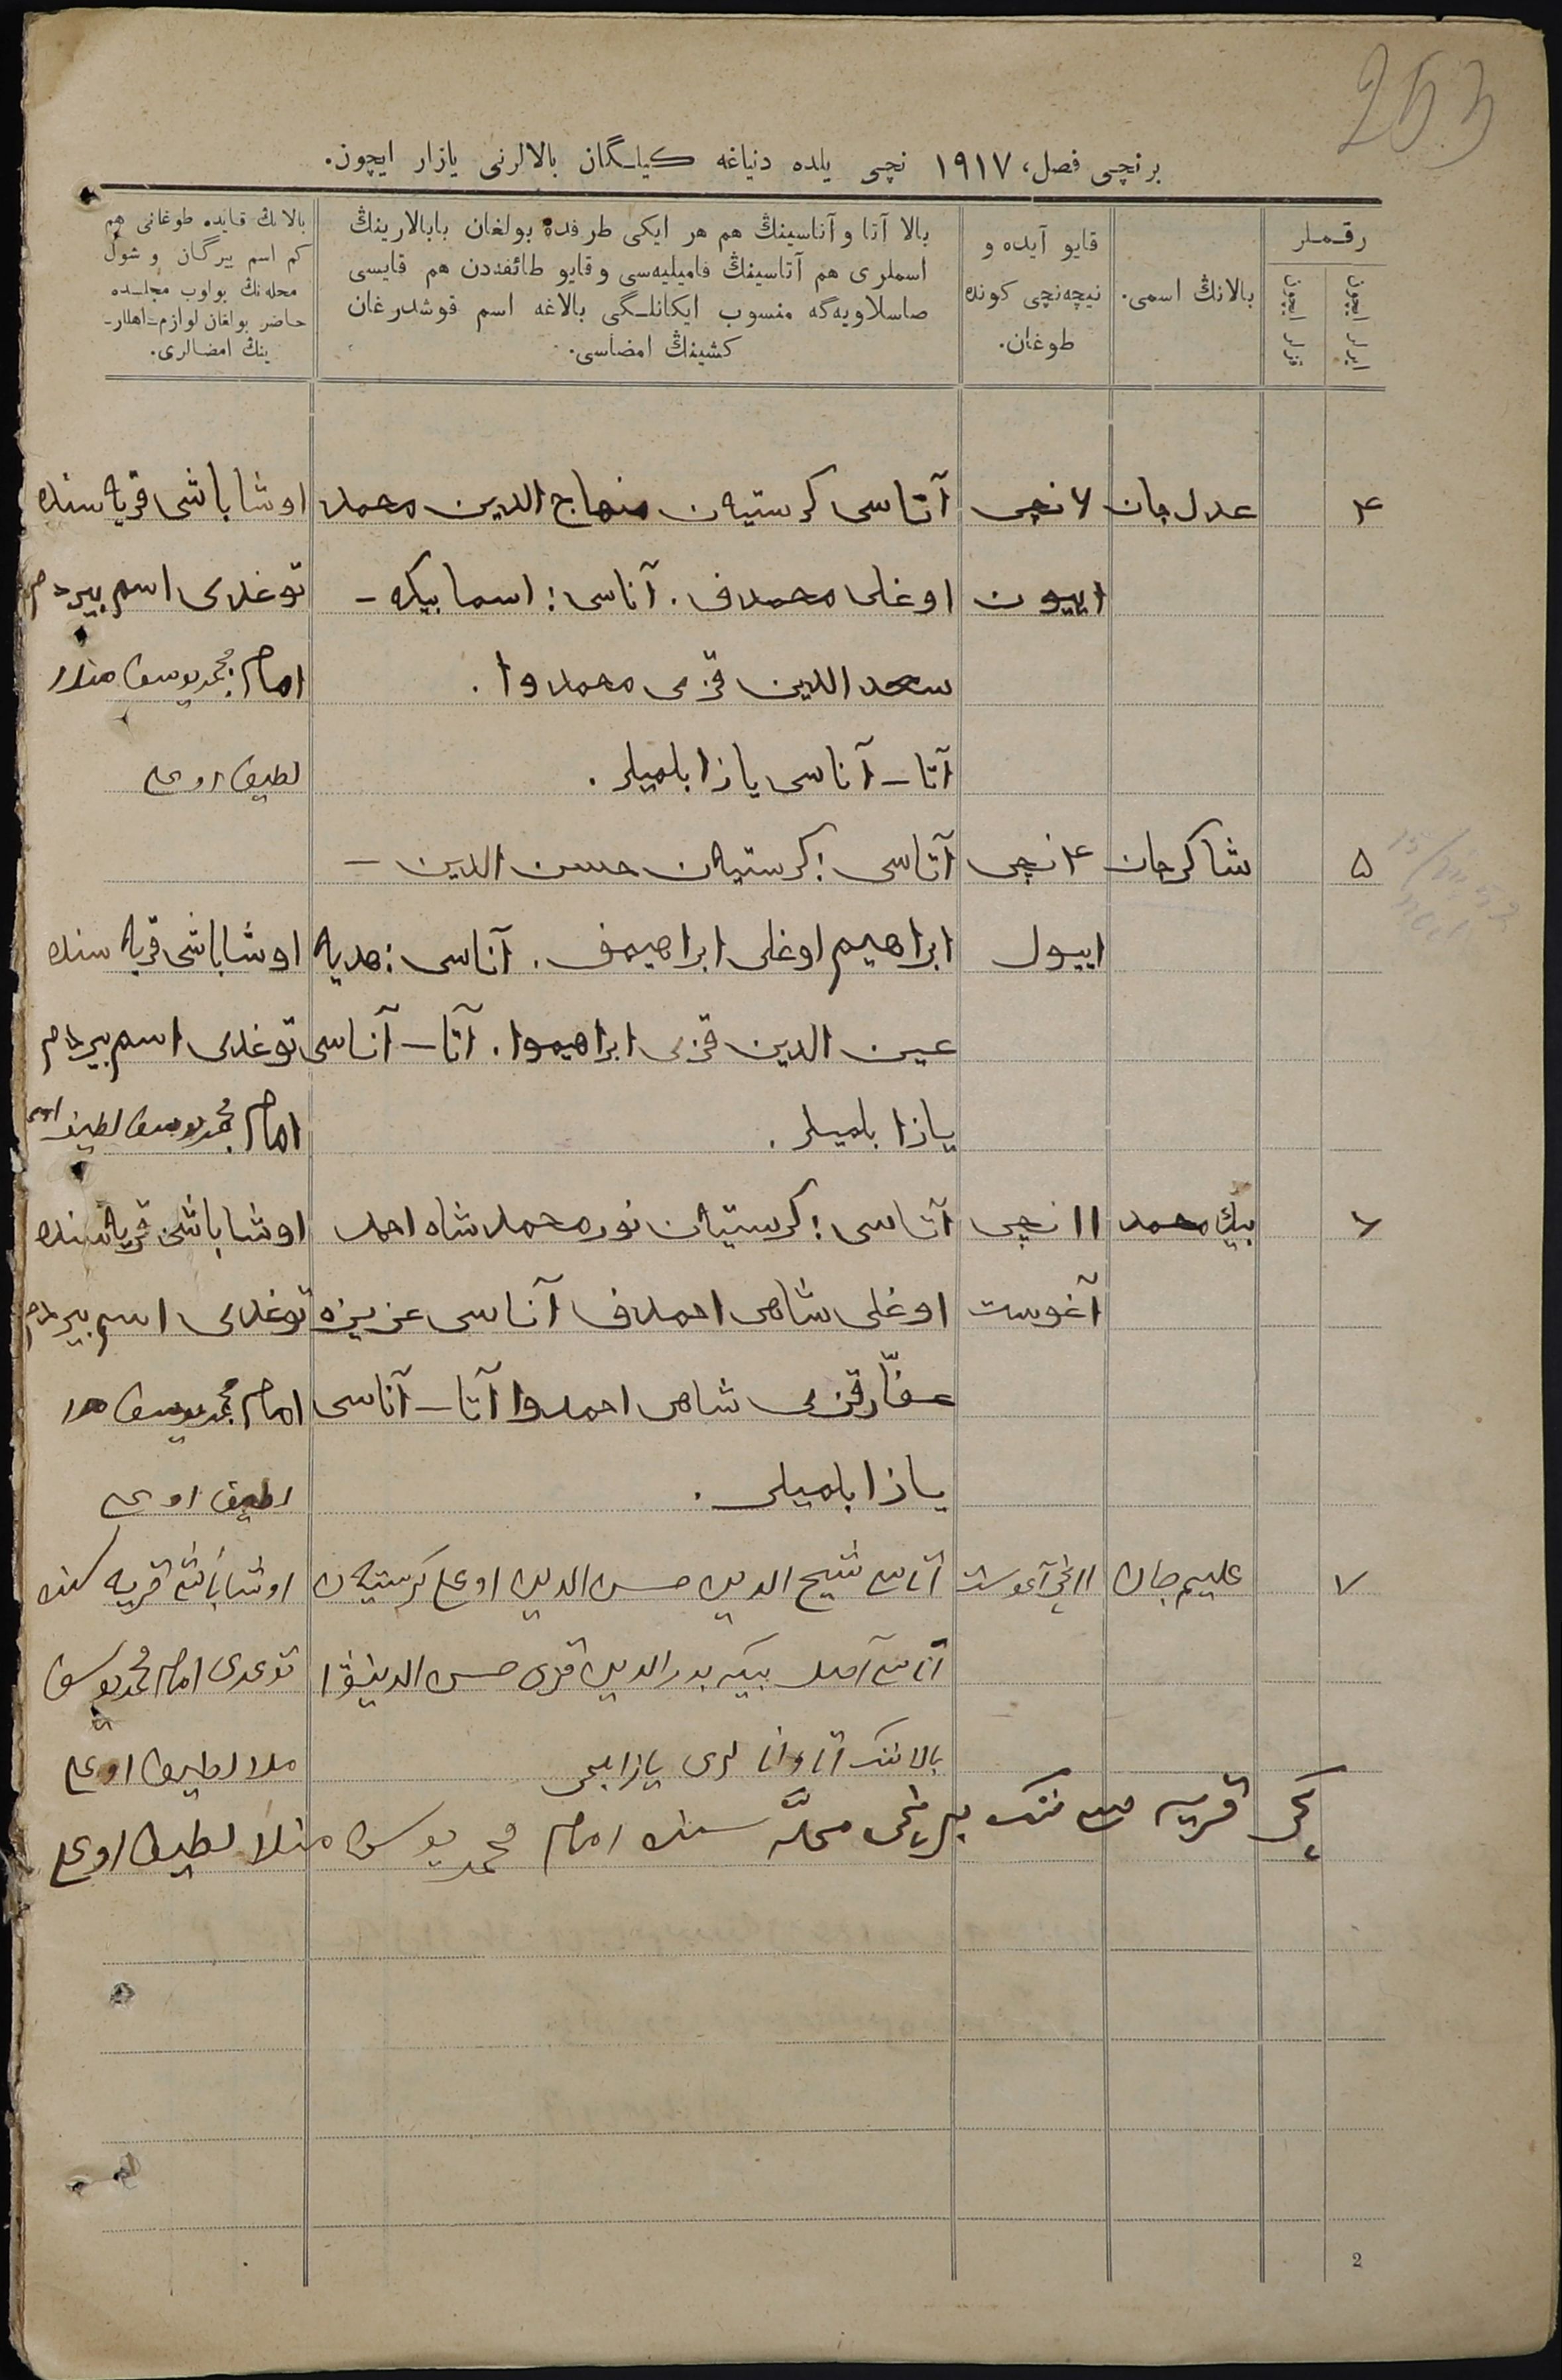 253
برنچی فصل، ١٩١٧ نچی یلده دنیاغه کیلـگان بالالرنی یازار ایچون.
رقـمـلر
ایرلر ایچون
قزلر ایچون
بالانڭ اسمی.
قایو آیده و
نیچه‌نچی کونده
طوغان.
بالا آتا و آناسینڭ هم هر ایکی طرفده بولغان بابالارینڭ
اسملری هم آتاسینڭ فامیلیه‌سی و قایو طائفه‌دن هم قایسی
صاسلاویه‌گه منسوب ایکانلـگی بالاغه اسم قوشدرغان
کشینڭ امضاسی.
بالانڭ قایده طوغانی هم
کم اسم بیرگان و شول
محله‌نڭ بولوب مجلـسده
حاضر بولغان لوازم-اهللار-
ینڭ امضالری.
۴ عدل جان ٧ نچی آتاسی کرستیه‌ن منهاج الدین محمد اوشاباشی قریه سنده
اییون اوغلی محمدف. آناسی: اسما بیکه - توغدی اسم بیردم
سعد الدین قزی محمدوا. امام محمد یوسف منلا
آتا - آناسی یازا بلمیلر. لطیف اوغلی
۵ شاکرجان ۴ نچی آتاسی: کرستیه‌ن حسن الدین -
اییول ابراهیم اوغلی ابراهیمف. آناسی: هدیه اوشاباشی قریه سنده
عین الدین قزی ابراهیموا. آتا - آناسی توغدی اسم بیردم
یازا بلمیلر. امام محمد یوسف لطیف
٦ بیك محمد ١١ نچی آتاسی: کرستیه‌ن نور محمد شاه احمد اوشاباشی قریه سنده
آغوست اوغلی شاهی احمدف آناسی عزیزه توغدی اسم بیردم
غفّار قزی شاهی احمدوا آتا - آناسی امام محمد یوسف منلا
یازا بلمیلر. لطیف اوغلی
٧ علیم جان ١١ نچی آغوست آتاسی شیخ الدین حسن الدین اوغلی کرستیه‌ن اوشاباشی قریه سنده
آناسی بیکه بدر الدین قزی حسن الدینوا توغدی امام محمد یوسف
بالاننک آتا و انا لری یازا بلمی ملا لطیف اوغلی
قریه سی ننک برنچی محلّه سنده امام محمد یوسف منلا لطیف اوغلی
2